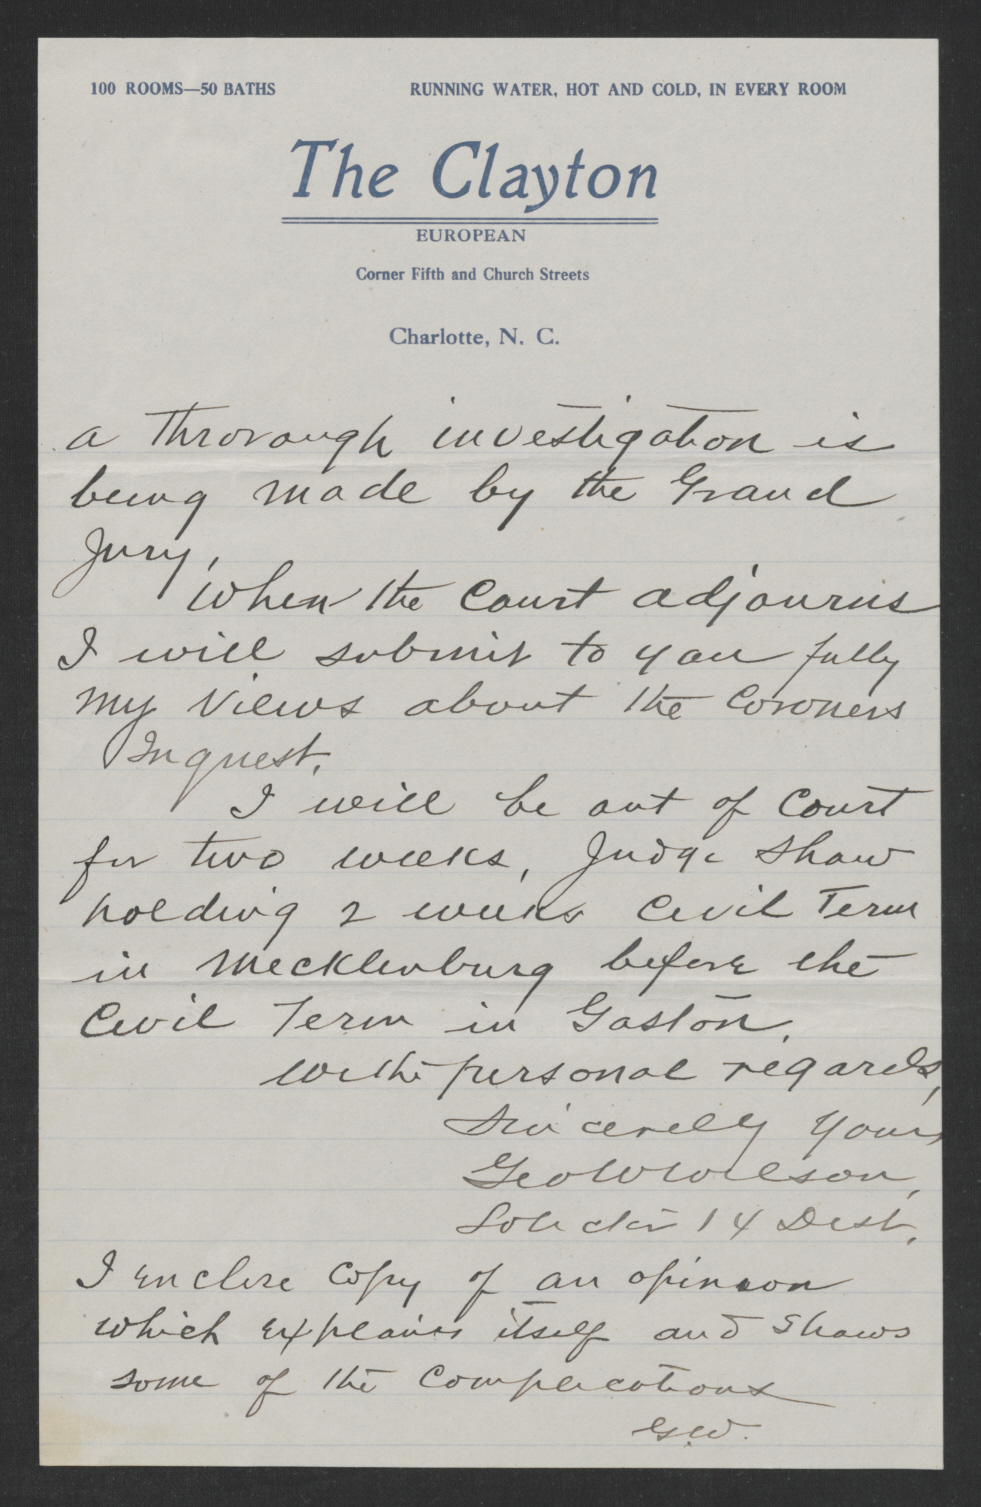 100 ROOMS—50 BATHS RUNNING WATER, HOT AND COLD, IN EVERY ROOM
The Clayton
EUROPEAN
Corner Fifth and Church Streets
Charlotte, N. C.
a throrough investigation is
being made by the Grand
Jury,
When the Court adjourns
I will submit to you fully
my views about the Coroners
Inquest.
I will be out of Court
for two weeks, Judge Shaw
holding 2 weeks Civil Term
in Mecklenburg before the
Civil Term in Gaston.
With personal regards,
Sincerely Yours
Geo W Wilson,
Solicitor 14 Dist.
I enclose Copy of an opinion
which explains itself and shows
some of the Complications
G.W.